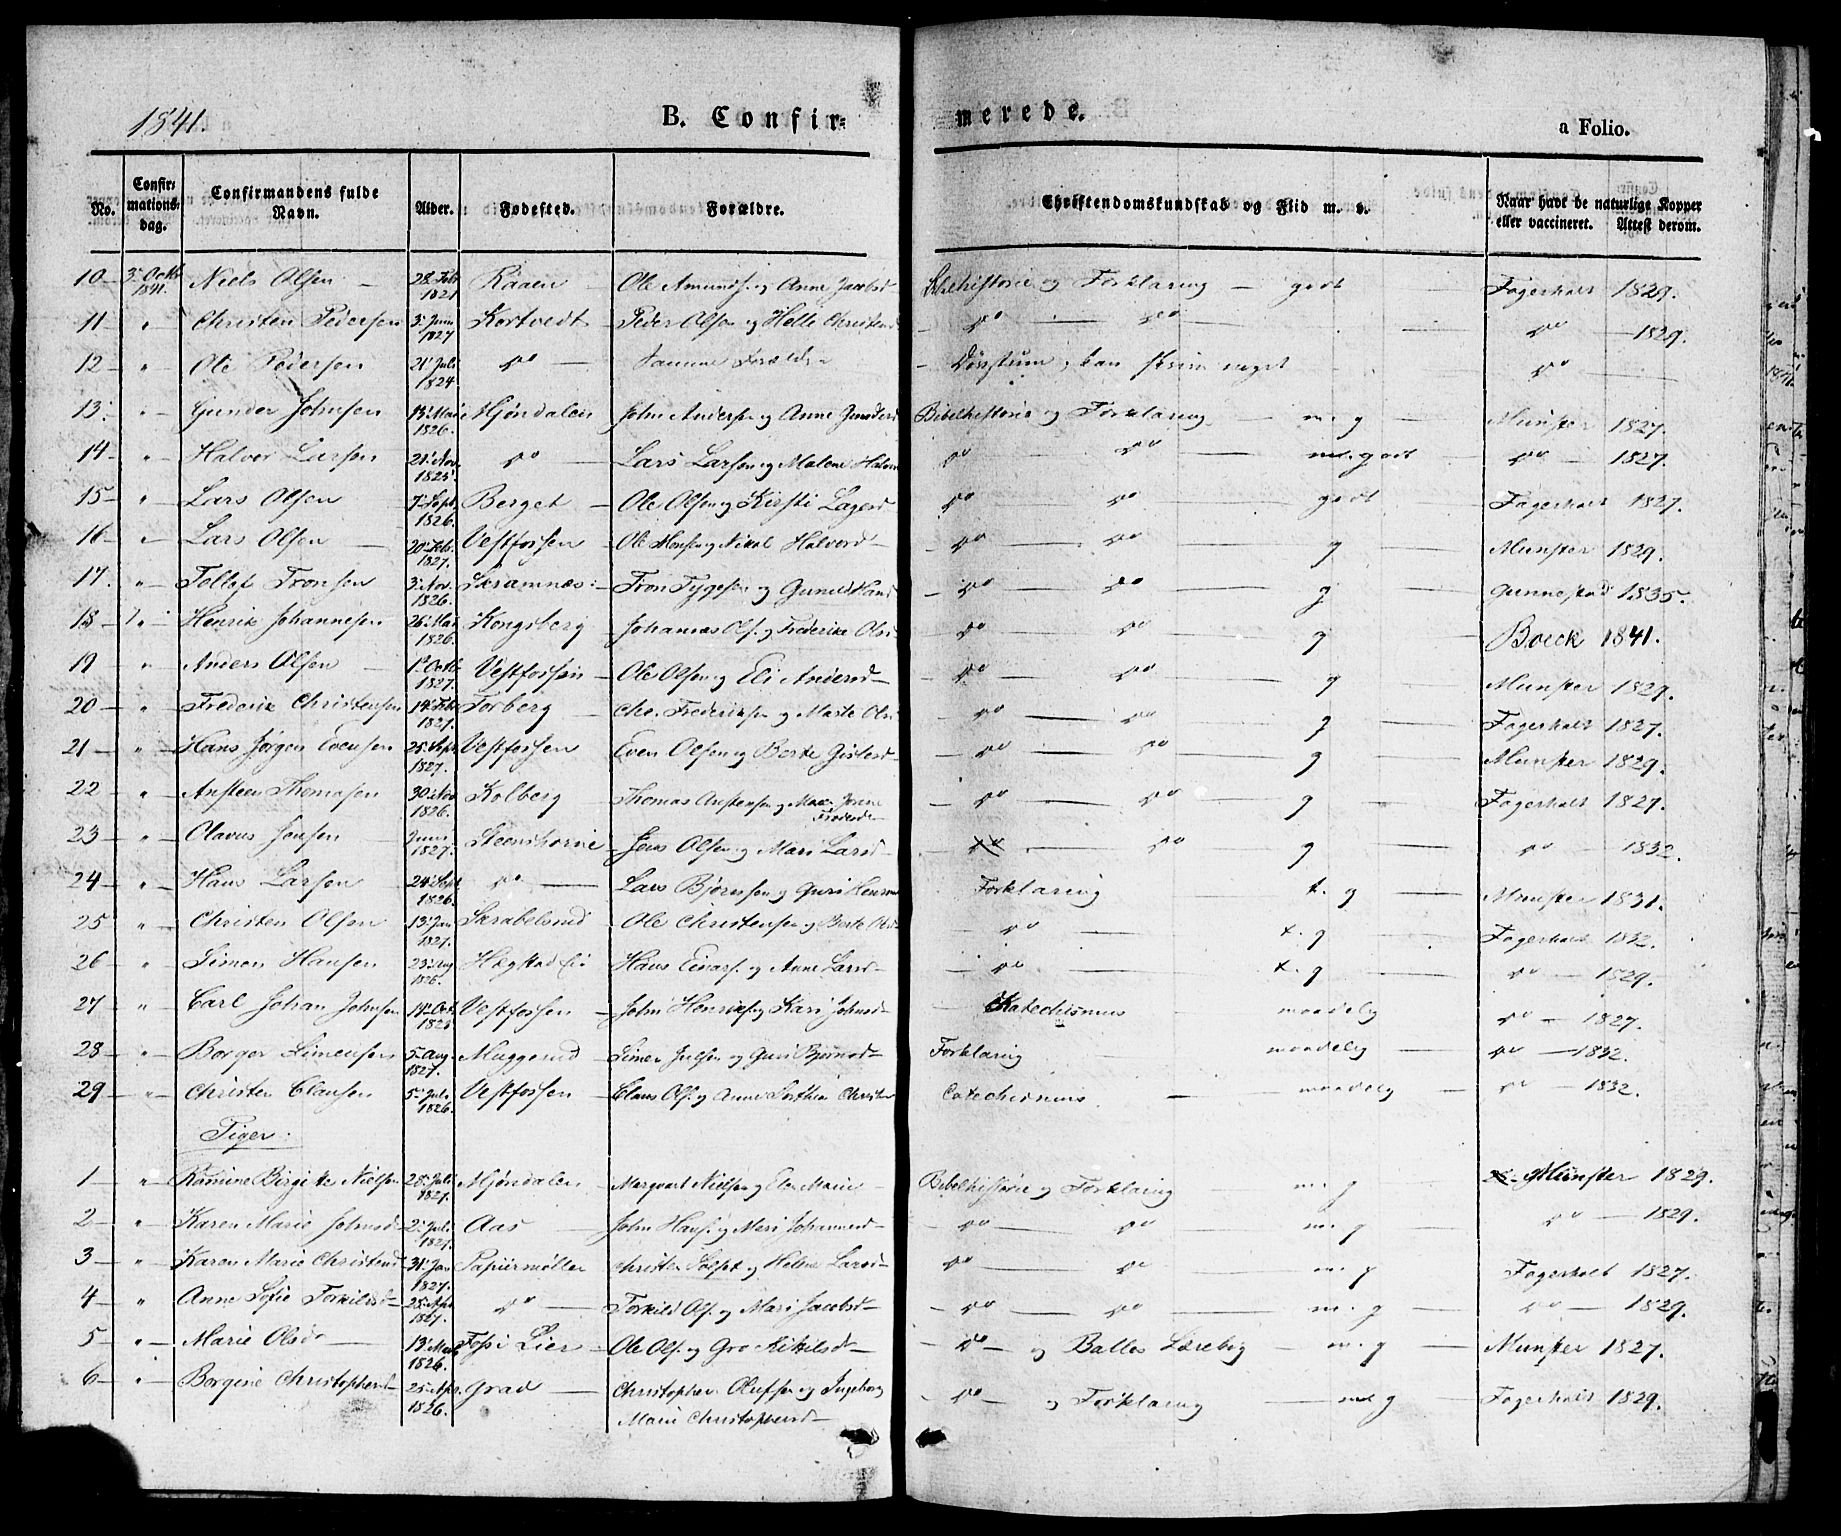 1841.
B. Confir=
merede.
a Folio.
No. Confir=mations=dag. Confirmandens fulde Navn. Alder. Fødested. Forældre. Christendomskundskab og Flid m. v. Naar havt de naturlige Kopper eller vaccineret. Attest derom.
10 3. Octb 1841. Niels Olsen 28. Febr 1821 Raaen Ole Amunds. og Anne Jacobsd Bibelhistorie og Forklaring godt Fagerholt 1829.
11 " Christen Pedersen 3. Juni 1827 Kortvedt Peder Olsen og Helle Christensd do do do 1829.
12 " Ole Pedersen 21. Juli 1824. do Samme Forældre Døvstum, kan skrive noget do
13. " Gunder Johnsen 13. Mai 1826. Mjøndalen John Andersen og Anne Gundersd Bibelhistorie og Forklaring m. g Munster 1827.
14 " Halvor Larsen 21. Nov. 1825. do Lars Larsen og Malene Halvors do do m. godt do 1827.
15 " Lars Olsen 7. Sept. 1826. Berget Ole Olsen og Kirsti Lagesd do do godt Fagerholt 1827.
16 " Lars Olsen 20. Feb. 1827. Vestfossen Ole Monsen og Nikol Halvord do do g Munster 1829.
17. " Tollef Tronsen 3. Nov. 1826. Skramnæs Tron Tygesen og Gunild Hansd do do g Gunnestad 1835.
18 " Henrik Johannesen 26. Mai 1826. Kongsberg Johannes Ols. og Frederike Ols do do g Boeck 1841.
19 " Anders Olsen 1. Octb. 1827. Vestfossen Ole Olsen og Eli Andersd do do g Munster 1829.
20 " Frederik Christensen 14. Febr 1827. Torberg Chr. Frederiksen og Marte Ols do do g Fagerholt 1827.
21 " Hans Jørgen Evensen 25. Apr. 1827. Vestfossen Even Olsen og Berte Gulersd do do g Munster 1829.
22 " Ansteen Thomasen 30. Nov 1826. Kolberg Thomas Anstensen og Maren do do g Fagerholt 1827.
23 " Olavus Jensen Juni 1827. Steenshorne Jens Olsen og Mari Larsd do do g do 1832.
24 " Hans Larsen 24. Sept 1826. do Lars Bjørnsen og Guri Forklaring t. g Munster 1831.
25 " Christen Olsen 13. Jan 1827. Skrabelsrud Ole Christensen og Berte Olsd do t. g Fagerholt 1832.
26 " Simon Hansen 23. Aug 1826. Hans Einars. og Anne Larsd do t. g do 1829.
27 " Carl Johan Johnsen 14. Oct. 1825 Vestfossen John Henriks. og Kari Johnsd Katechismus maadelig do 1827.
28 " Borger Simensen 5. Aug. 1827. Muggerud Simen Julsen og Guri Bjørnsd Forklaring maadelig do 1832.
29 " Christen Clausen 5. Juli 1826. Vestfossen Claus Ols. og Anne Christen Catechismus maadelig do 1832.
Piger:
1 " Ramine Birgitte Nielsen 28. Juli 1827. Mjøndalen Margvart Nielsen og Elen Marie Bibelhistorie og Forklaring m. g Munster 1829.
2 " Karen Marie Johnsd 2. Juli 1827. Aas John Hans. og Mari Johannesd do do m. g do 1829.
3 " Karen Marie Christensd 31. Jan 1827. Papiermøllen Christen og Helene Larsd do do m. g Fagerholt 1827.
4 " Anne Sofie Torkildsd 25. Apr 1827. do Torkild Ols. og Mari Jacobsd do do m. g do 1829.
5 " Marie Olsd 13. Marts 1826. Foss i Lier Ole Ols. og Gro Kittilsd do og Balles Lærebog m. g Munster 1827.
6 " Borgine Christophersd 25. Apr. 1826. Grad Christopher Olufsen og Ingeborg Marie Christophersd do og Forklaring m. g Fagerholt 1829.